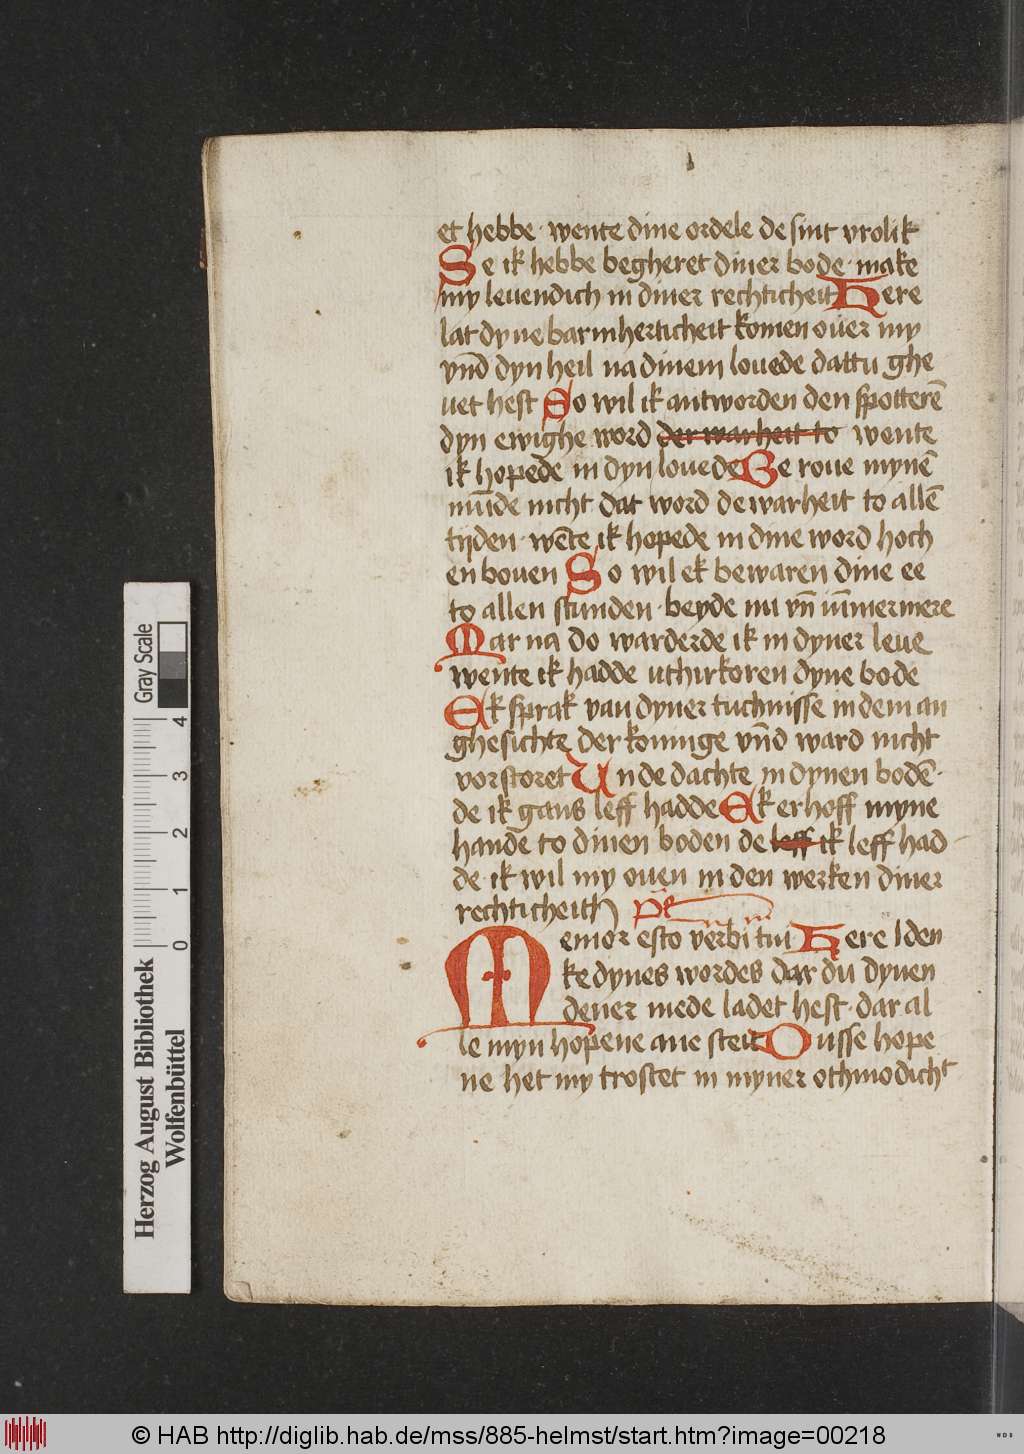 et hebbe · wente dine ordele de sint vrolik
Se ik hebbe begheret diner bode · make
my leuendich in diner rechticheit Here
lat dyne barmherticheit komen ouer my
vnd dyn heil na dinem louede dattu ghe
uet hest So wil ik antworden den spotterē
dyn ewighe word der warheit to wente
ik hopede in dyn louede Be roue mynē
mūde nicht dat word de warheit to allē
tijden · wēte ik hopede in dine word hoch
en bouen So wil ek bewaren dine ee
to allen stunden · beyde nu vn̄ iūmermere
Mar na do warderde ik in dyner leue
wente ik hadde uthirkoren dyne bode
Ek sprak van dyner tuchnisse in dem an
ghesichte der koninge vn̄d ward nicht
vorstoret Unde dachte in dynen bodē ·
de ik gans leff hadde Ek erhoff myne
hande to dinen boden de leff ik leff had
de · ik wil my ouen in den werken diner
rechticheith ps̄
Memor esto verbi tui Here Iden
ke dynes wordes dar du dynen
dener mede ladet hest · dar al
le myn hopene ane steit Dusse hope
ne het my trostet in myner othmodicht
Gray Scale
4
3
2
1
0
Herzog August Bibliothek
Wolfenbüttel
© HAB http://diglib.hab.de/mss/885-helmst/start.htm?image=00218
WDB